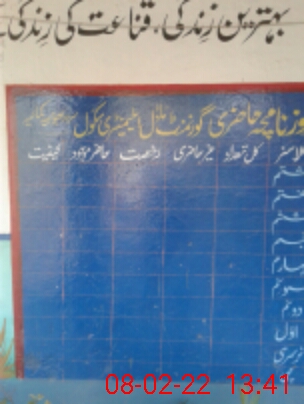 بہترین زندگی، قناعت کی زندگی
روزنامچہ حاضری گورنمنٹ ماڈل ایلیمنٹری سکول
کلاسز کل تعداد غیر حاضری رخصت حاضر موجود کیفیت
ہشتم
ہفتم
ششم
پنجم
چہارم
سوئم
دوئم
اول
نرسری
08-02-22 13:41